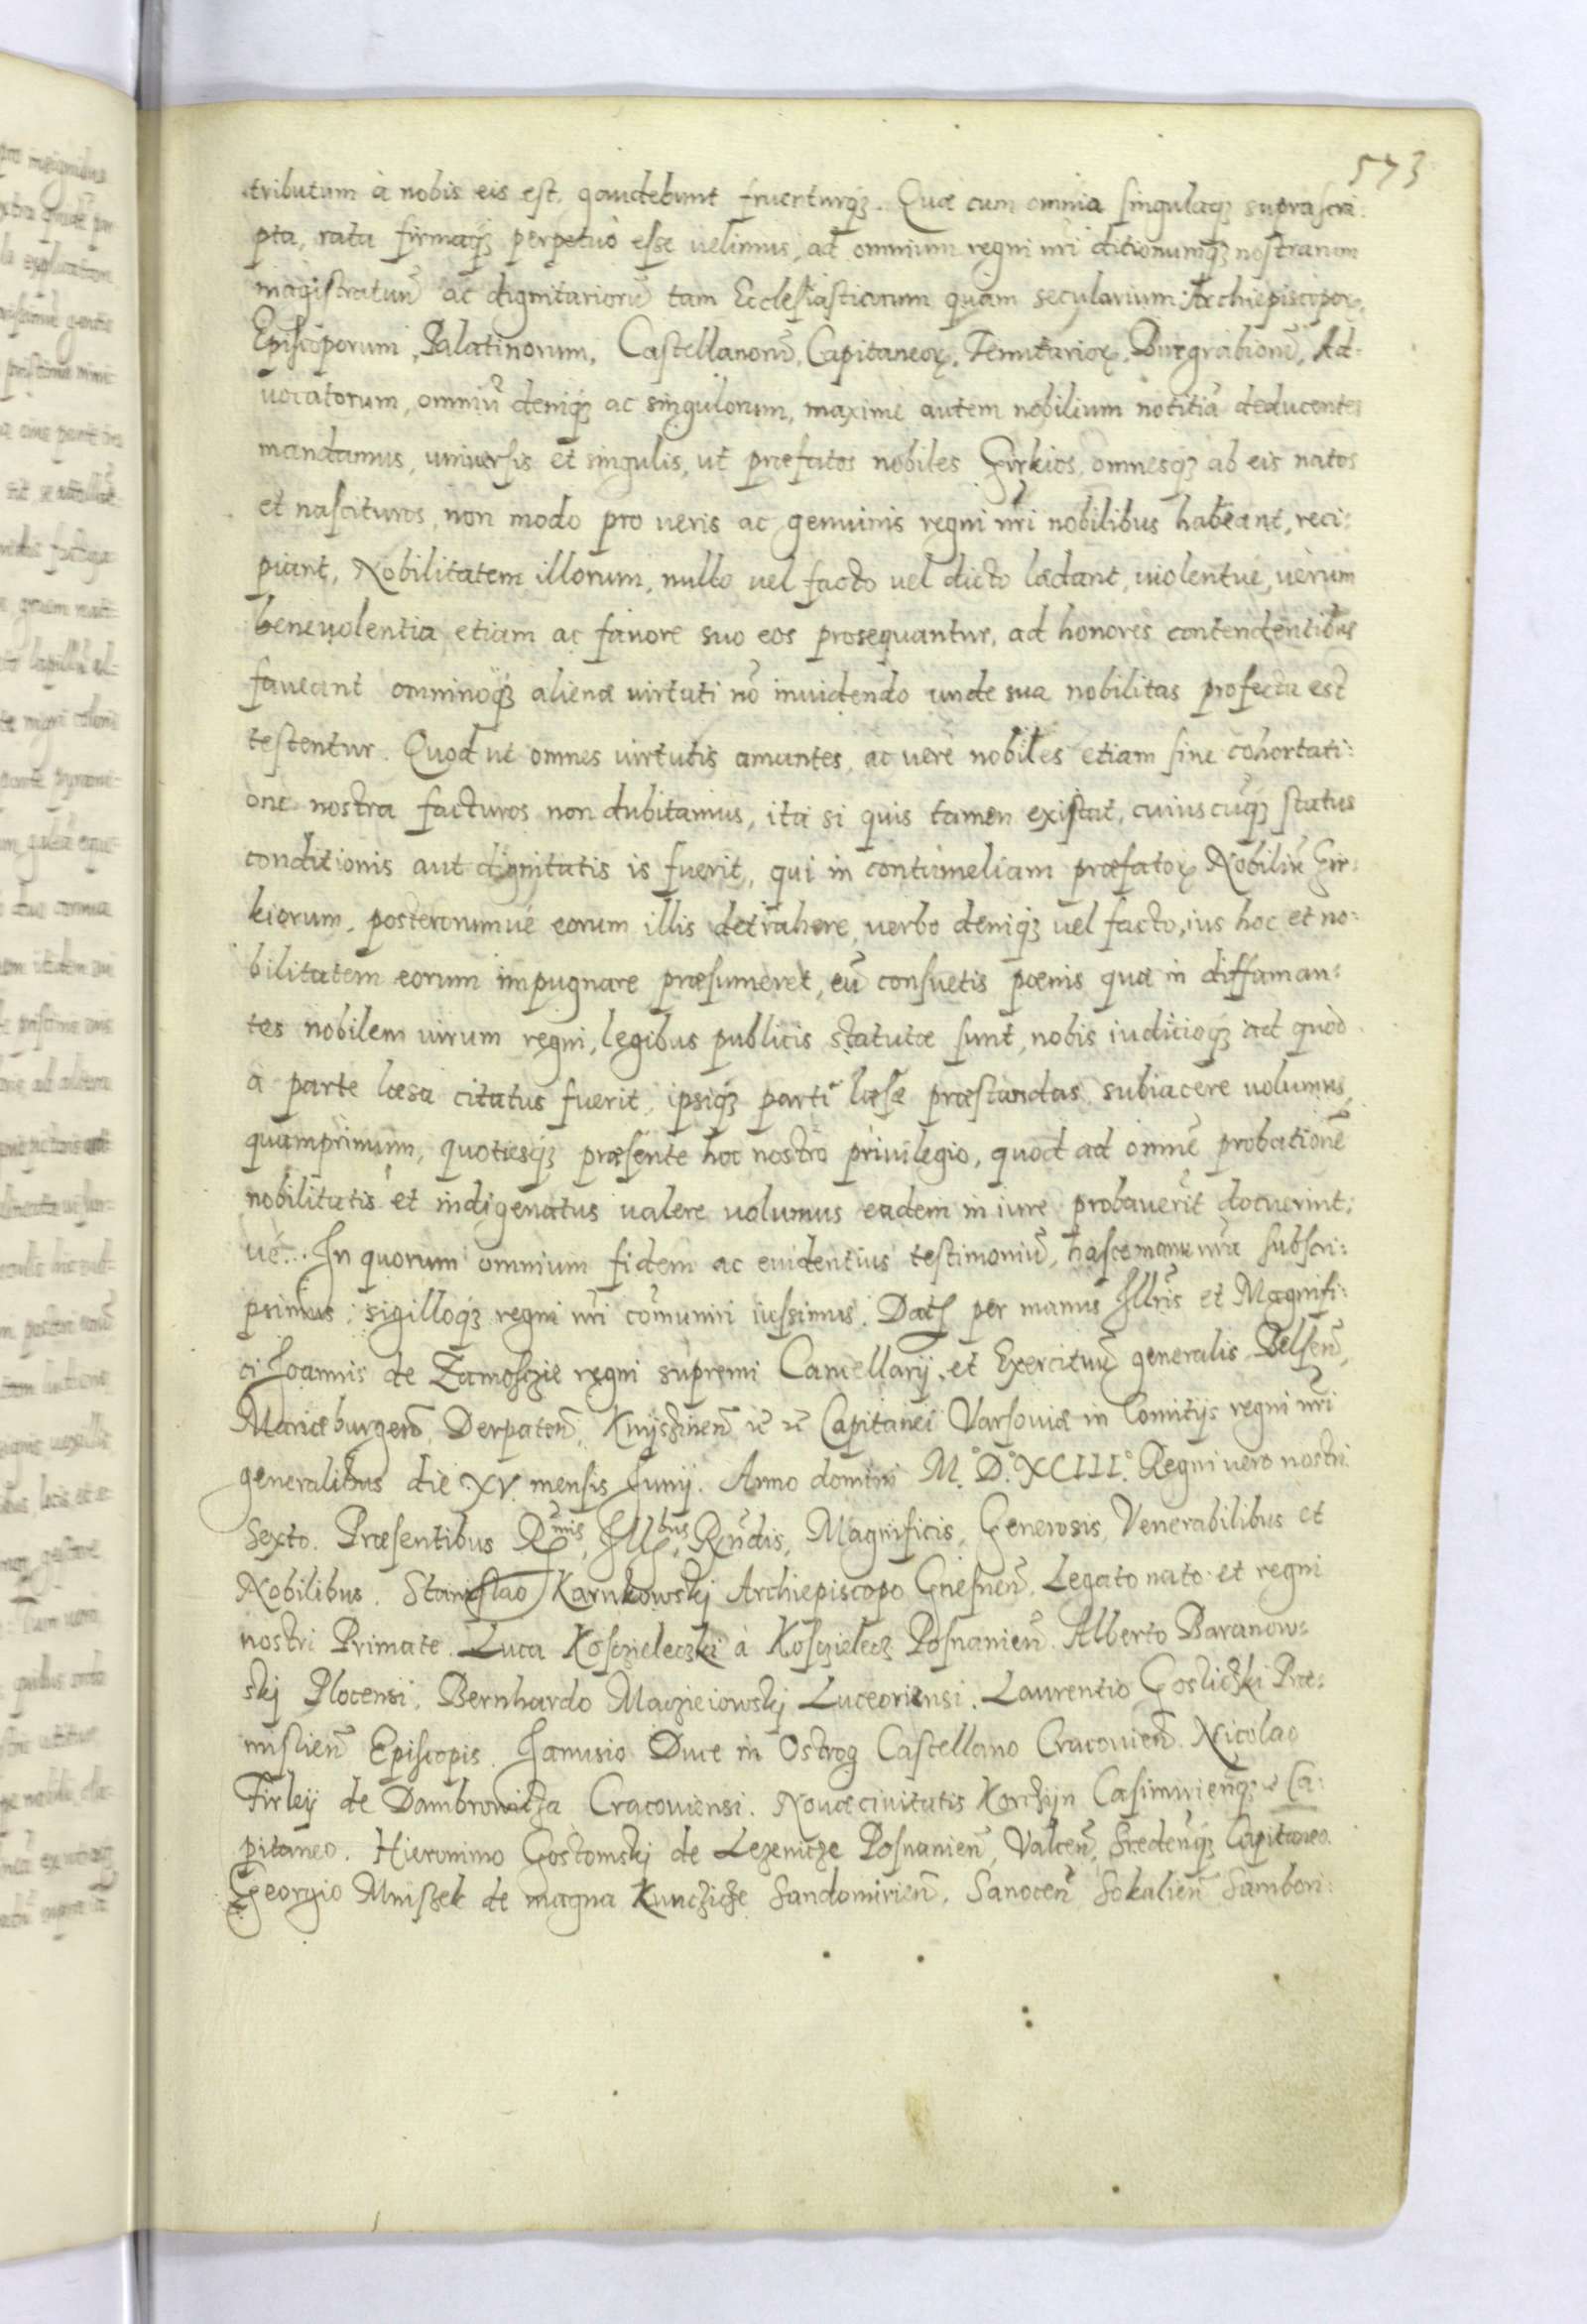 573
tributum à nobis eis est, gaudebunt fruenturq₃. Quæ cum omnia singulaq₃ suprascri:
pta, rata firmaq₃ perpetuò esse uelimus, ad omnium regni nr̃i ditionumq₃ nostrarum
magistratuũ ac dignitariorũ tam Ecclesiasticorum quam secularium: Archiepiscopoꝝ,
Episcoporum, Palatinorum, Castellanorũ, Capitaneoꝝ, Tenutarioꝝ, Burgrabionũ, Ad:
uocatorum, omniũ deniq₃ ac singulorum, maxime autem nobilium notitiã deducentes
mandamus, uniuersis et singulis, ut præfatos nobiles Girkios, omnesq₃ ab eis natos
et nascituros, non modo pro ueris ac genuinis regni nr̃i nobilibus habeant, reci:
piant, Nobilitatem illorum, nullo uel facto uel dicto lædant, uiolentue, uerùm
beneuolentia etiam ac fauore suo eos prosequantur, ad honores contendentibus
faueant omninoq₃ alienæ uirtuti nõ inuidendo unde sua nobilitas profecta est
testentur. Quod ut omnes uirtutis amantes, ac uerè nobiles etiam sine cohortati:
one nostra facturos non dubitamus, ita si quis tamen existat, cuiuscũq₃ status
conditionis aut dignitatis is fuerit, qui in contumeliam præfatoꝝ Nobiliũ Gir:
kiorum, posterorumuè eorum illis detrahere, uerbo deniq₃ uel facto, ius hoc et no:
bilitatem eorum impugnare præsumeret, eũ consuetis pœnis quæ in diffaman:
tes nobilem uirum regni, legibus publicis statutæ sunt, nobis iuditioq₃ ad quod
a parte læsa citatus fuerit, ipsiq₃ parti læsæ præstandas subiacere uolumus,
quamprimum, quotiesq₃ præsente hoc nostro priuilegio, quod ad omnẽ probationẽ
nobilitatis et indigenatus ualere uolumus eadem in iure probauerit docuerint:
uè. In quorum omnium fidem ac euidentius testimoniũ, hasce manu nr̃a subscri:
psimus: sigilloq₃ regni nr̃i cõmuniri iussimus. Dat̃ per manus Ill̃ris et Magnifi:
ci Joannis de Zamoschie regni supremi Cancellarij, et Exercituũ generalis, Belseñ,
Mariæburgeñ, Derpateñ, Knijschineñ ⁊c̃ ⁊c̃ Capitanei Varsouiæ in Comitijs regni nr̃i
generalibus die XV. mensis Junij. Anno domini M.° D.° XCIII.° Regni uero nostri
Sexto. Præsentibus R̃mis, Ill̃bus, Rñdis, Magnificis, Generosis, Venerabilibus et
Nobilibus. Stanislao Karnkowskj Archiepiscopo Gnesneñ, Legato nato et regni
nostri Primate. Luca Kosczieleczki à Kosczielecz Posnanieñ. Alberto Baranow:
skj Plocensi. Bernhardo Macziejowskj Luceoriensi. Laurentio Goslicżki Præ:
mislieñ Episcopis. Janusio Duce in Ostrog Castellano Cracouieñ. Nicolao
Firleij de Dambrowicza Cracouiensi. Nouæciuitatis Korczijn Casimirieñq₃ ⁊c̃ Ca:
pitaneo. Hieronimo Gostomskj de Lezenicze Posnanieñ, Valceñ, Sredeñq₃ Capitaneo.
Georgio Mniszek de magna Kunczicze Sandomirieñ, Sanoceñ Sokalieñ Sambori: